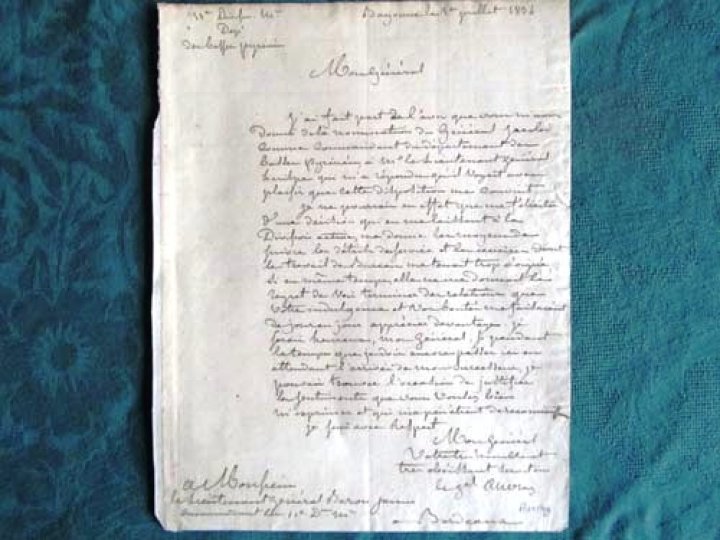 11e Divison Mre Bayonne le 2 juillet 1831
Dept
des basses pyrénées
Mon Général
J'ai fait part de l'avis que vous m'avez
donné de la nomination du Général Jacobi
comme Commandant du département des
Basses Pyrénées, à Mr le Lieutenant général
harispe qui m'a répondu qu'il voyait avec
plaisir que cette disposition me convint
je ne pourrais en effet que me féliciter
d'une décision qui en me laissant à la
Division active, me donne les moyens de
suivre les détails de service et les
le travail de Bureau me tenant trop
si en même temps elle ne me donnait le
regret de voir terminer des relations que
votre indulgence et vos bontés me faisaient
de jour en jour apprécier davantage. je
serai heureux, mon Général, si pendant
le temps que je dois encore passer ici en
attendant l'arrivée de mon successeur, je
pouvais trouver l'occasion de justifier
les sentiments que vous voulez bien
m'exprimer et qui me pénètrent de reconnaissance
je suis avec Respect
Mon Général
Votre très humble et
très obéissant serviteur
Le gal
a Monsieur
le Lieutenant général Baron Janin
commandant la 11e Don Mre
a Bordeaux